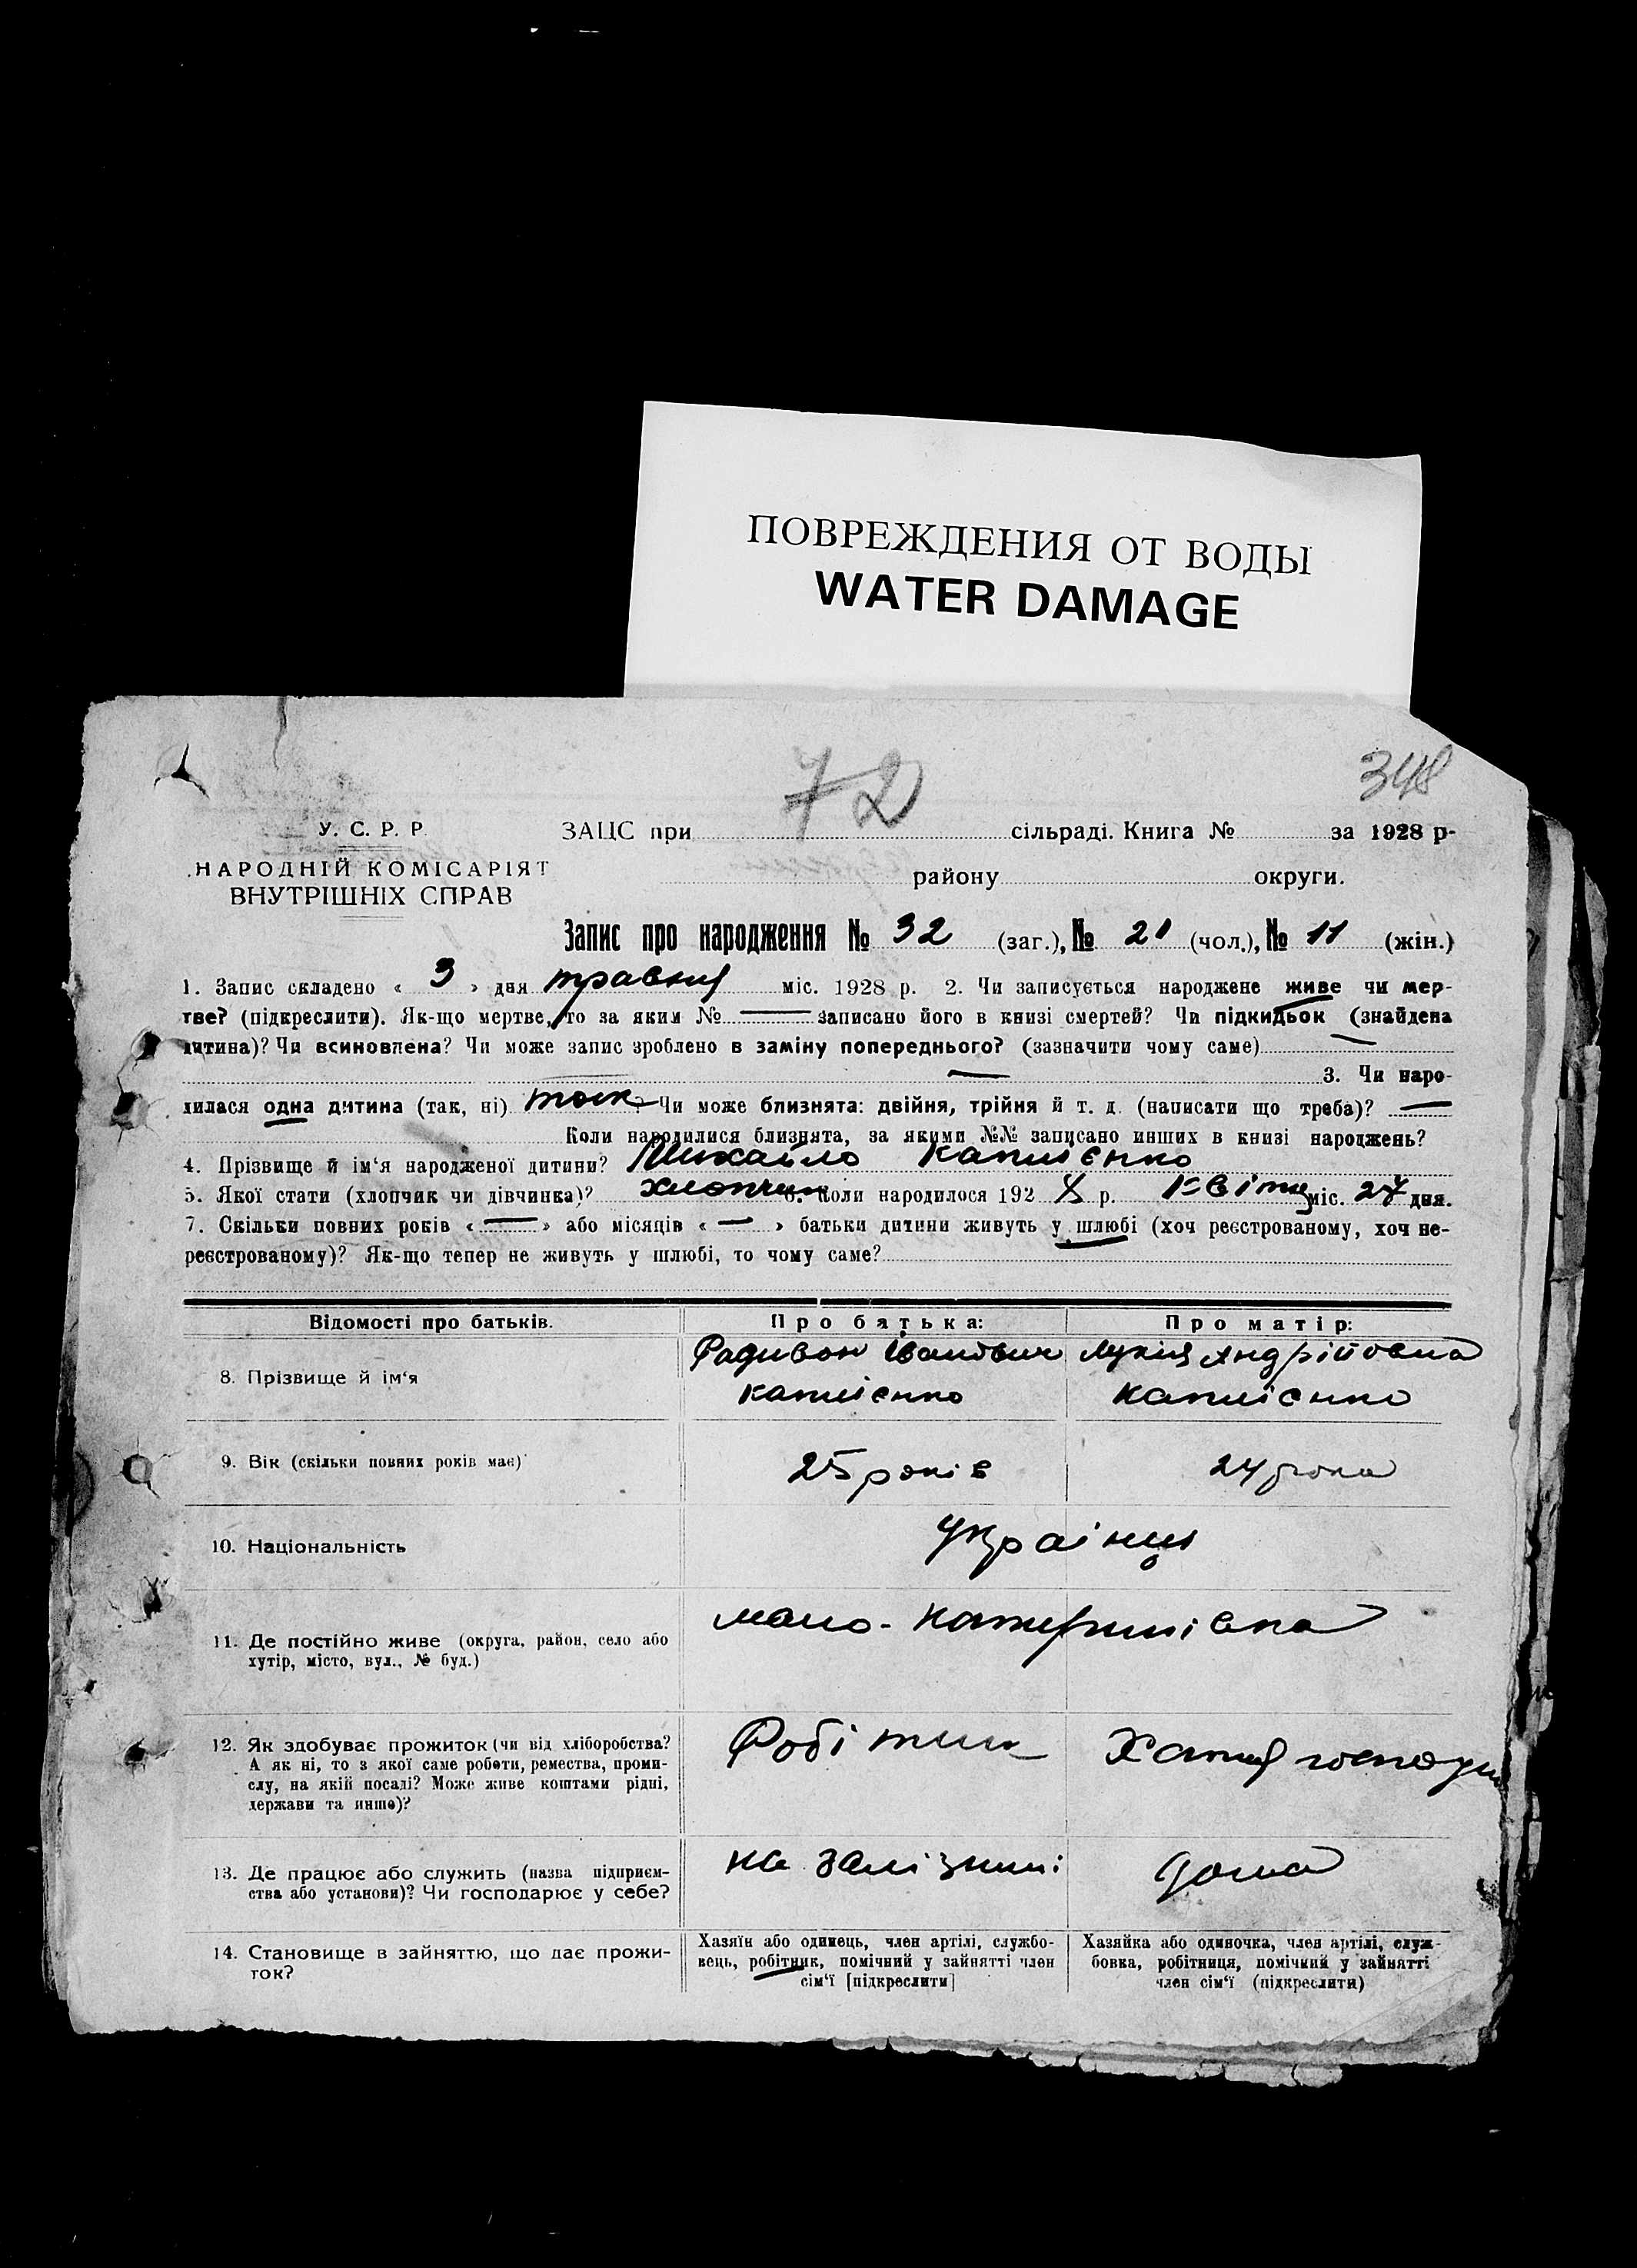 ПОВРЕЖДЕНИЯ ОТ ВОДЫ
WATER DAMAGE
72
348
У. С. Р. Р.
НАРОДНІЙ КОМІСАРІЯТ
ВНУТРІШНІХ СПРАВ
ЗАЦС при сільраді. Книга № за 1928 р-
району округи.
Запис про народження № 32 (заг.), № 21 (чол.), № 11 (жін.)
1. Запис складено « 3 » дня травня міс. 1928 р. 2. Чи записується народжене живе чи мер-
тве? (підкреслити). Як-що мертве, то за яким № — записано його в книзі смертей? Чи підкидьок (знайдена
дитина)? Чи всиновлена? Чи може запис зроблено в заміну попереднього? (зазначити чому саме) —
— 3. Чи наро-
дилася одна дитина (так, ні) так ? Чи може близнята: двійня, трійня й т. д. (написати що треба)? —
Коли народилися близнята, за якими №№ записано инших в книзі народжень?
4. Прізвище й ім‘я народженої дитини? Михайло
5. Якої стати (хлопчик чи дівчинка)? хлопчик 6. Коли народилося 192 8 р. Квітня міс. 27 дня.
7. Скільки повних років « — » або місяців « — » батьки дитини живуть у шлюбі (хоч реєстрованому, хоч не-
реєстрованому)? Як-що тепер не живуть у шлюбі, то чому саме?
Відомості про батьків.
Про батька:
Про матір:
8. Прізвище й ім‘я
Радивон Іванович
Лукія Андрійовна
9. Вік (скільки повних років має)
25 років
24 рока
10. Національність
Українці
11. Де постійно живе (округа, район, село або
хутір, місто, вул., № буд.)
мало-Катеринівка
12. Як здобуває прожиток (чи від хліборобства?
А як ні, то з якої саме роботи, ремества, проми-
слу, на якій посаді? Може живе коштами рідні,
держави та инше)?
Робітник
Хатня
13. Де працює або служить (назва підприєм-
ства або установи)? Чи господарює у себе?
на залізниці
дома
14. Становище в зайняттю, що дає прожи-
ток?
Хазяїн або одинець, член артілі, службо-
вець, робітник, помічний у зайнятті член
сім‘ї [підкреслити]
Хазяйка або одиночка, член артілі, служ-
бовка, робітниця, помічний у зайнятті
член сім‘ї (підкреслити)